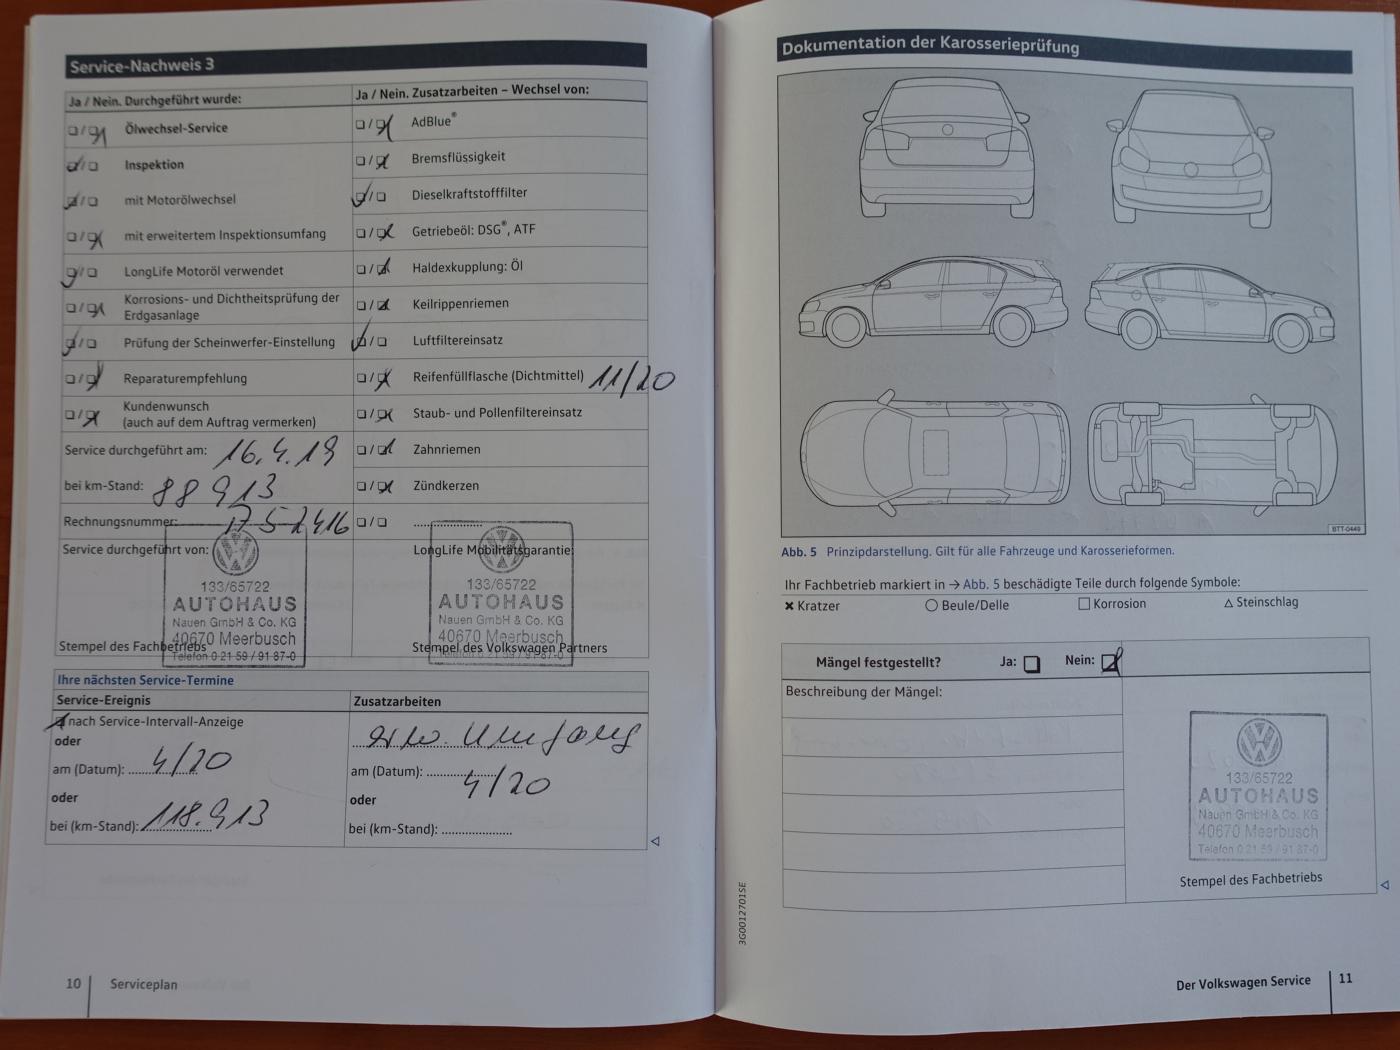 Service-Nachweis 3
Ja / Nein. Durchgeführt wurde:
☐ / ☑ Ölwechsel-Service
☑ / ☐ Inspektion
☑ / ☐ mit Motorölwechsel
☐ / ☑ mit erweitertem Inspektionsumfang
☑ / ☐ LongLife Motoröl verwendet
☐ / ☑ Korrosions- und Dichtheitsprüfung der
Erdgasanlage
☑ / ☐ Prüfung der Scheinwerfer-Einstellung
☐ / ☑ Reparaturempfehlung
☐ / ☑ Kundenwunsch
(auch auf dem Auftrag vermerken)
Service durchgeführt am: 16.4.19
bei km-Stand: 88 913
Rechnungsnummer:
Service durchgeführt von:
133/65722
AUTOHAUS
Nauen GmbH & Co. KG
40670 Meerbusch
Telefon 0 21 59 / 91 87-0
Stempel des Fachbetriebs
Ja / Nein. Zusatzarbeiten – Wechsel von:
☐ / ☑ AdBlue®
☐ / ☑ Bremsflüssigkeit
☑ / ☐ Dieselkraftstofffilter
☐ / ☑ Getriebeöl: DSG®, ATF
☐ / ☑ Haldexkupplung: Öl
☐ / ☑ Keilrippenriemen
☑ / ☐ Luftfiltereinsatz
☐ / ☑ Reifenfüllflasche (Dichtmittel) 11/20
☐ / ☑ Staub- und Pollenfiltereinsatz
☐ / ☑ Zahnriemen
☐ / ☑ Zündkerzen
☐ / ☐ ....................
LongLife Mobilitätsgarantie:
133/65722
AUTOHAUS
Nauen GmbH & Co. KG
40670 Meerbusch
Telefon 0 21 59 / 91 87-0
Stempel des Volkswagen Partners
Ihre nächsten Service-Termine
Service-Ereignis
☑ nach Service-Intervall-Anzeige
oder
am (Datum): 4/20
oder
bei (km-Stand): 118.913
Zusatzarbeiten
erw. Umfang
am (Datum): 4/20
oder
bei (km-Stand): ....................
10 Serviceplan
Dokumentation der Karosserieprüfung
BTT-0449
Abb. 5 Prinzipdarstellung. Gilt für alle Fahrzeuge und Karosserieformen.
Ihr Fachbetrieb markiert in → Abb. 5 beschädigte Teile durch folgende Symbole:
✖ Kratzer ○ Beule/Delle □ Korrosion △ Steinschlag
Mängel festgestellt? Ja: ☐ Nein: ☑
Beschreibung der Mängel:
133/65722
AUTOHAUS
Nauen GmbH & Co. KG
40670 Meerbusch
Telefon 0 21 59 / 91 87-0
Stempel des Fachbetriebs
3G0012701SE
Der Volkswagen Service 11